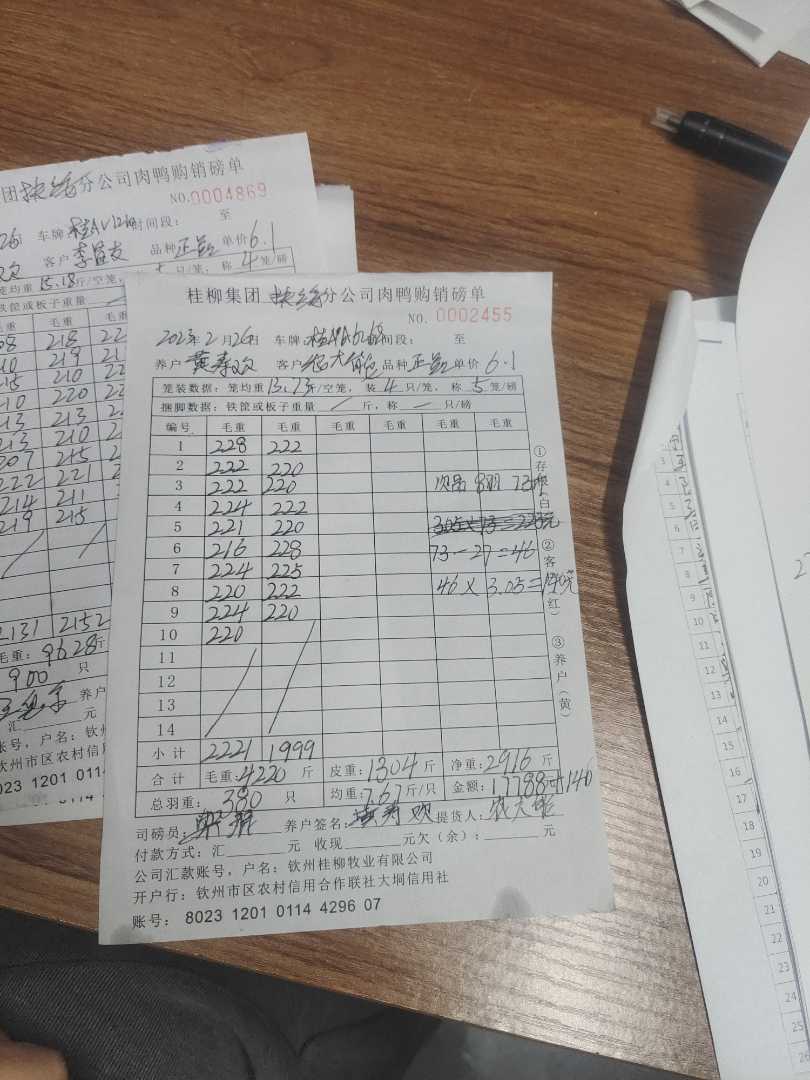 团 分公司肉鸭购销磅单
NO.0004869
26日 车牌 桂AV12 时间段: 至
客户 李富友 品种 正品 单价 6.1
笼均重 15.18斤/空笼, 5 只/笼, 称 4 笼/磅
铁筐或板子重量
毛重 毛重 毛重
08 218 22
10 219 21
15 210 22
10 220
13 213
213 210
207 215
222 221
214 211
219 215
2131 2152
毛重: 9628斤
900 只
养户
汇 元
账号, 户名: 钦
钦州市区农村信
023 1201 011
桂柳集团 分公司肉鸭购销磅单
NO. 0002455
2023年2月26日 车牌 时间段: 至
养户 黄寿欢 客户 品种 正品 单价 6.1
笼装数据: 笼均重 13.73斤/空笼, 装 4 只/笼, 称 5 笼/磅
捆脚数据: 铁筐或板子重量 / 斤, 称 — 只/磅
编号 毛重 毛重 毛重 毛重 毛重 毛重
1 228 222
2 222 220
3 222 220 次品 8羽 73斤
4 224 222
5 221 220 3.05×73=223元
6 216 228 73-27=46
7 224 225
8 220 222 46×3.05=140元
9 224 220
10 220
11
12
13
14
小计 2221 1999
合计 毛重: 4220 斤 皮重: 1304 斤 净重: 2916 斤
总羽重: 380 只 均重: 7.67 斤/只 金额: 17788元+140
司磅员: 养户签名: 黄寿欢 提货人:
付款方式: 汇 元 收现 元欠(余): 元
公司汇款账号, 户名: 钦州桂柳牧业有限公司
开户行: 钦州市区农村信用合作联社大垌信用社
账号: 8023 1201 0114 4296 07
①存根(白)
②客户(红)
③养户(黄)
3
4
5
6
7
8
9
10
11
12
13
14
15
16
17
18
19
20
21
22
23
24
25
26